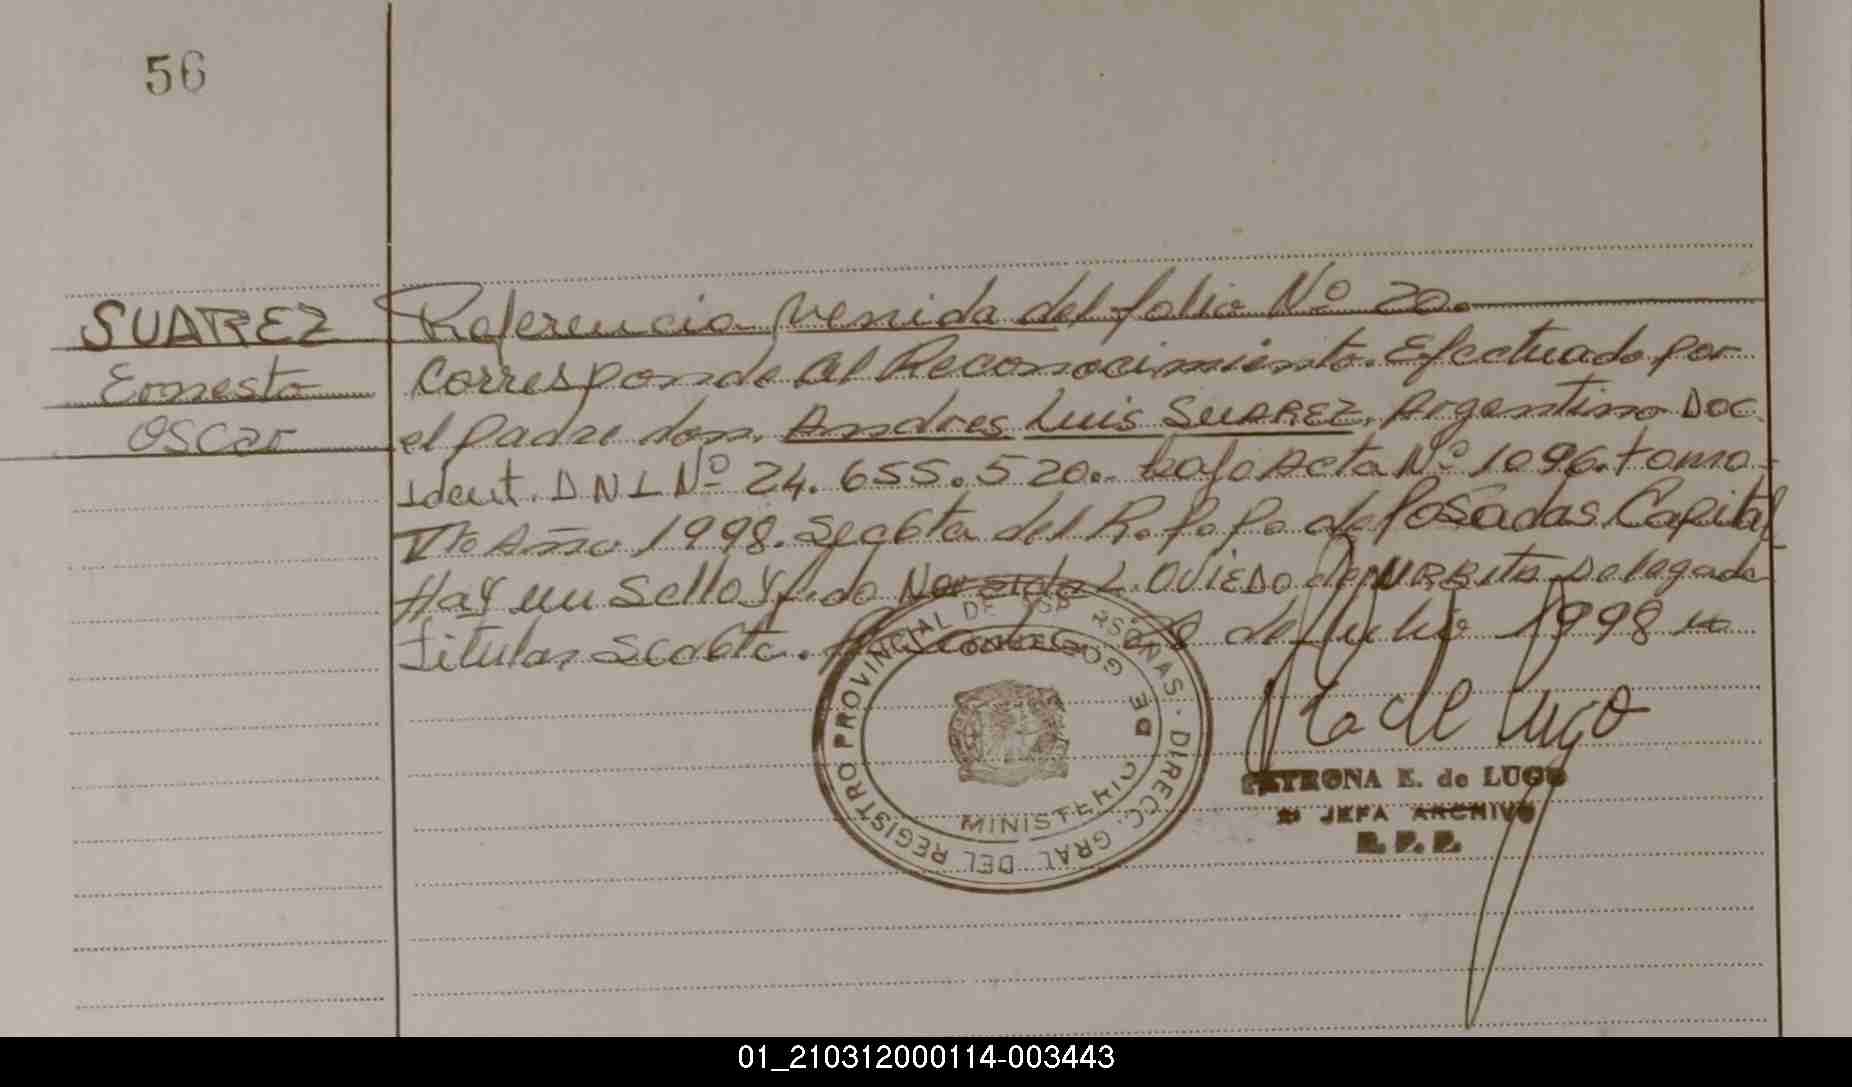 56
SUAREZ
Ernesto
Oscar
Referencia venida del folio Nº 20.
Corresponde al Reconocimiento. Efectuado por
el padre don. Andres Luis SUAREZ, Argentino Doc
Ident. DNI Nº 24.655.520.- bajo Acta Nº 1096. tomo
Vto Año 1998. Secc 6ta del R.P.P. de Posadas, Capital
Hay un sello y f. do L. OVIEDO de URBITA Delegada
titular Scc 6ta. 28 de Julio 1998
REGISTRO PROVINCIAL DE LAS PERSONAS - DIRECC. GRAL. DEL
MINISTERIO DE GOBIERNO
P. E. de Lugo
PETRONA E. de LUGO
JEFA ARCHIVO
R. P. P.
01_210312000114-003443